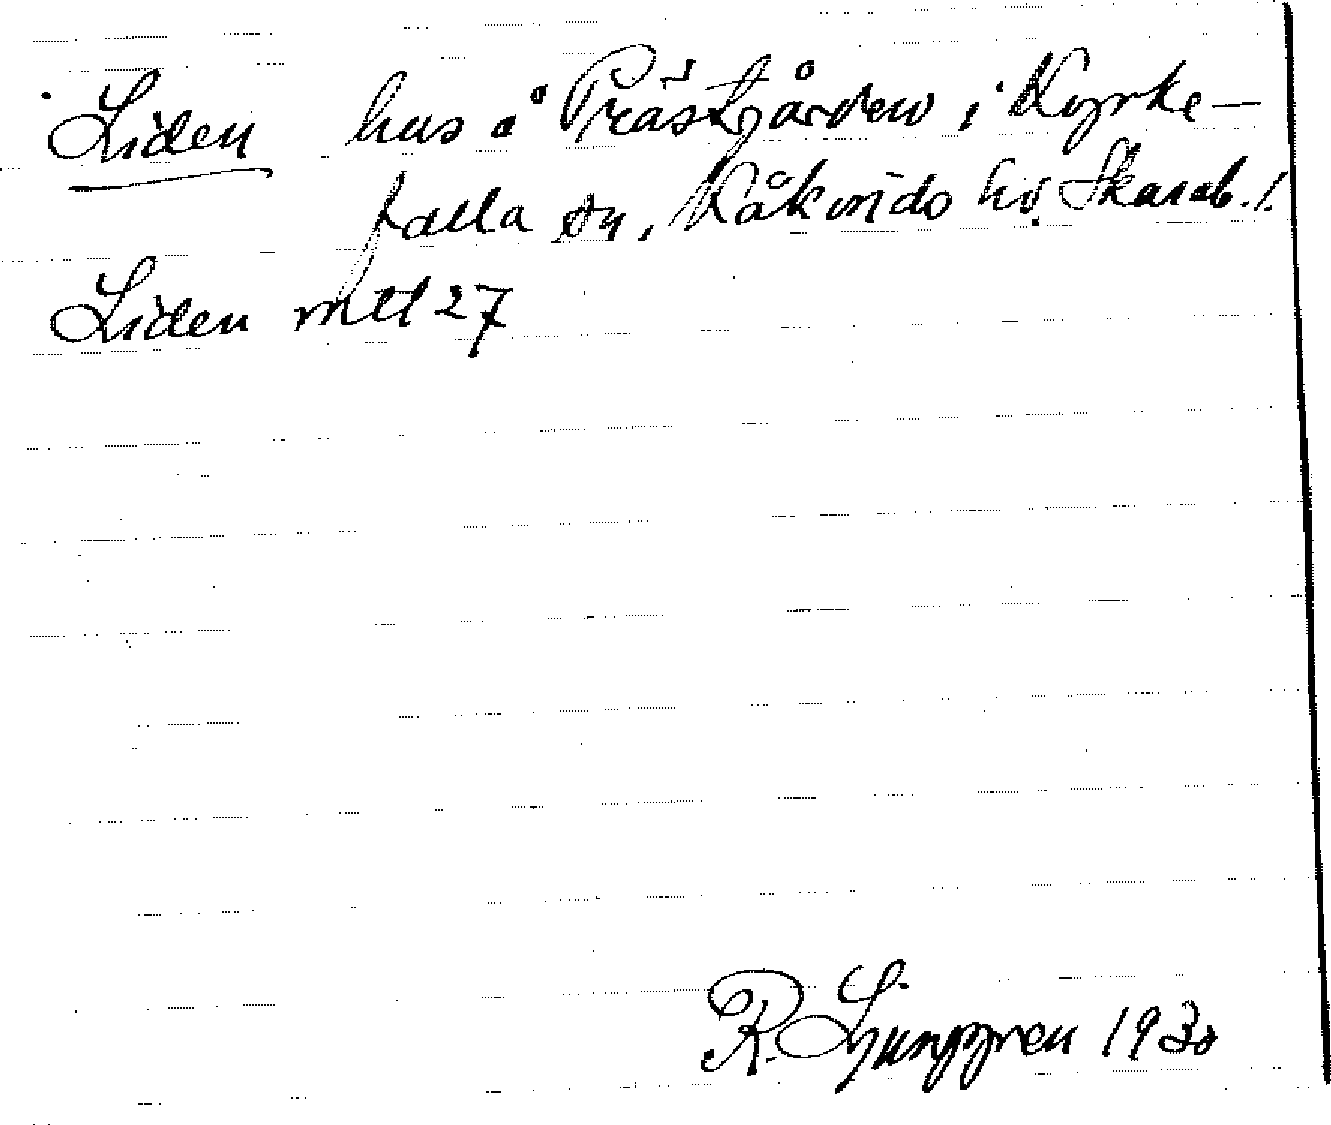 Liden hus å Prästgården i Kyrke-
falla sn, Kåkinds hd. Skarab. l.
Liden mtl 27
R. Ljunggren 1930